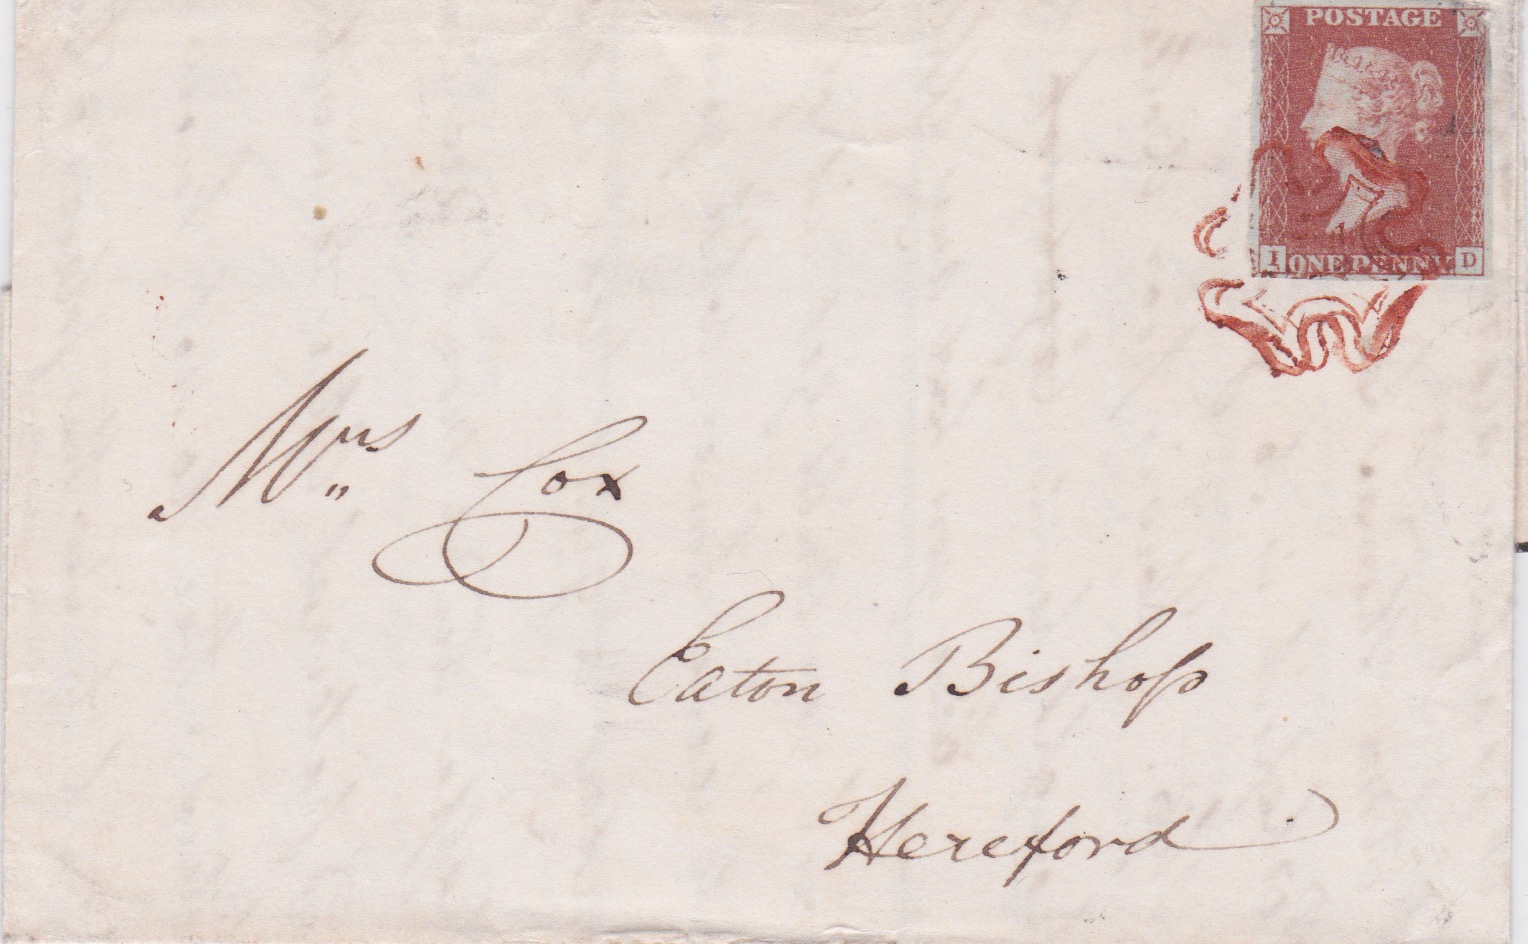 POSTAGE
I ONE PENNY D
Mrs Cox
Eaton Bishop
Hereford